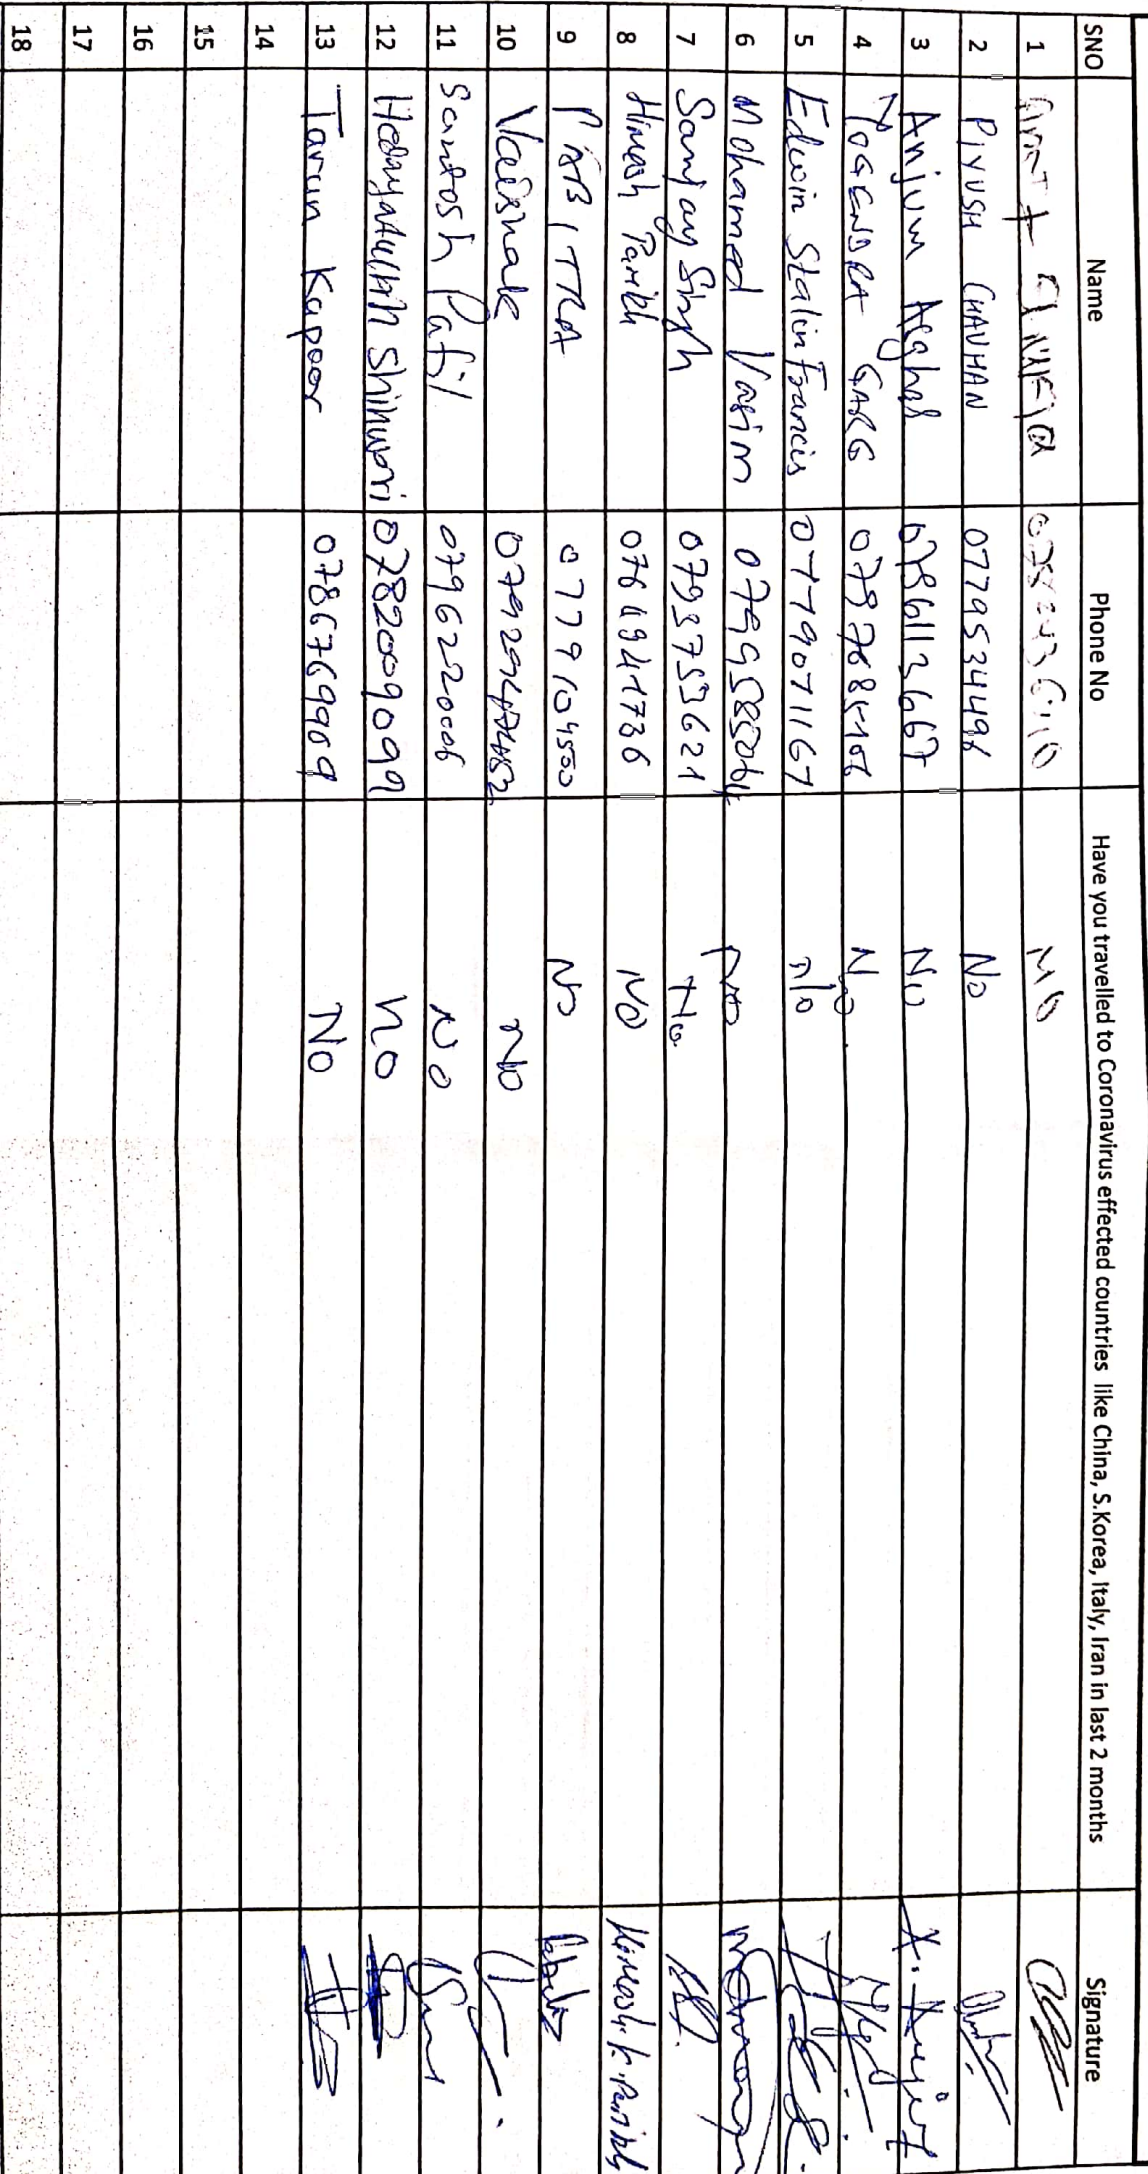 SNO Name Phone No Have you travelled to Coronavirus effected countries like China, S.Korea, Italy, Iran in last 2 months Signature
1
2 PIYUSH CHAVHAN 0779534496 No
3 Anjum Asghar 07861113667 No
4 YOGENDRA GARG No
5 Edwin Stalin Francis 0779071167 n/o
6 Mohamed Vasim No
7 Sanjay Singh 07937533621 No.
8 Himesh Parikh 0764941736 NO Himesh.k.Parikh
9 PABITRA 07779104500 No
10 Vaishak No
11 Santosh Patil 07962220006 No
12 Hedayatullah Shinwari 0782009099 no
13 Tarun Kapoor 07867699909 No
14
15
16
17
18